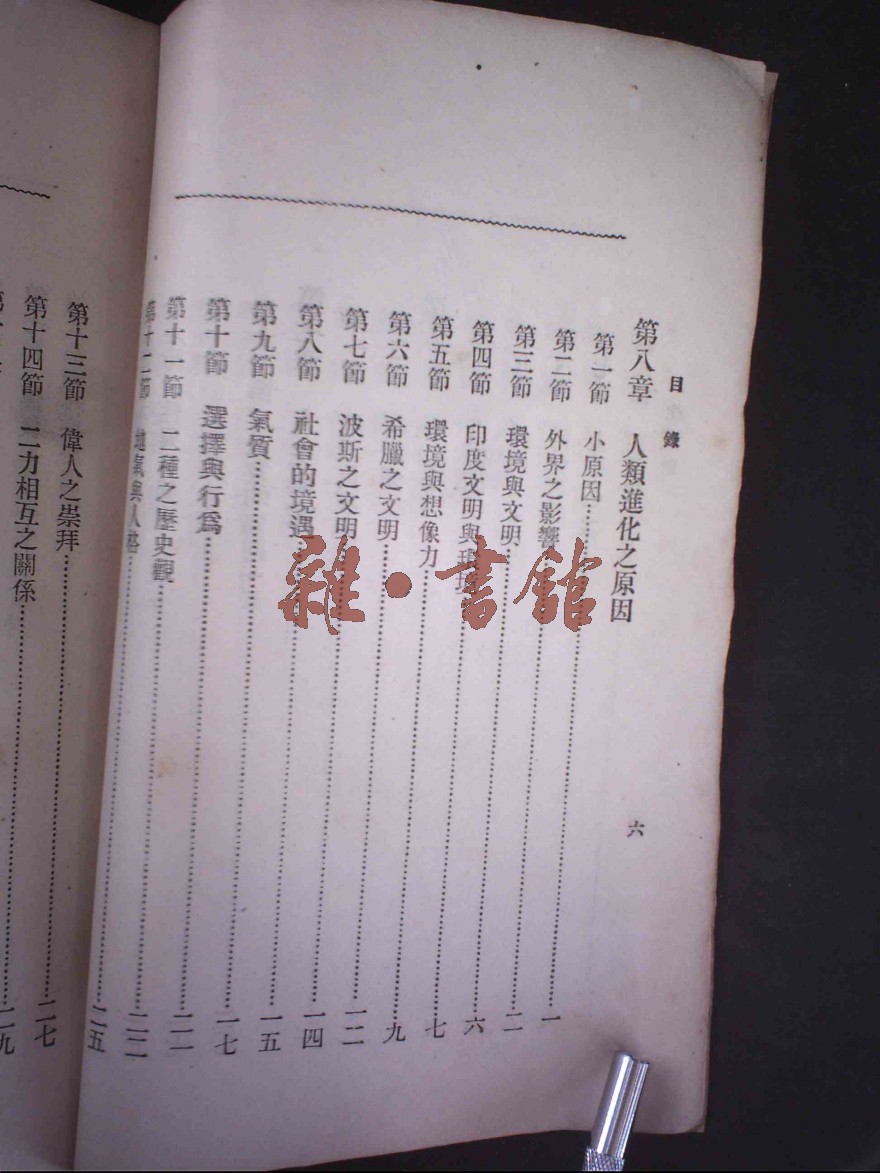 目錄
六
第八章 人類進化之原因
第一節 小原因……一
第二節 外界之影響……二
第三節 環境與文明……六
第四節 印度文明與環境……七
第五節 環境與想像力……九
第六節 希臘之文明……一二
第七節 波斯之文明……一四
第八節 社會的境遇……一五
第九節 氣質……一七
第十節 選擇與行爲……二一
第十一節 二種之歷史觀……二二
第十二節 地氣與人格……二五
第十三節 偉人之崇拜……二七
第十四節 二力相互之關係……二九
雜·書館